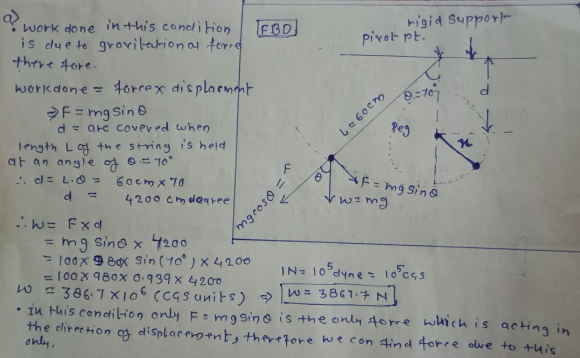 a)
• Work done in this condition
is due to gravitational force
there fore.
workdone = force x displacement
⇒ F = mg sin θ
d = arc covered when
length L of the string is held
at an angle of θ = 70°
∴ d = L·θ = 60cm × 70
d = 4200 cm degree
∴ W = F x d
= mg sin θ × 4200
= 100 × 980 × sin(70°) × 4200
= 100 × 980 × 0.939 × 4200
W = 386.7 × 10⁶ (CGS units) ⇒ W = 3867.7 N
1N = 10⁵ dyne = 10⁵ CGS
• In this condition only F = mg sin θ is the only force which is acting in
the direction of displacement, therefore we can find force due to this
only.
FBD
rigid support
pivot pt.
θ = 70°
d
L = 60cm
Peg
x
θ
F = mg sin θ
W = mg
mg cos θ = F